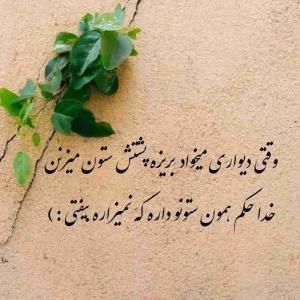 وقتی دیواری میخواد بریزه پشتش ستون میزنن
خدا حکم همون ستونو داره که نمیزاره بیفتی : )